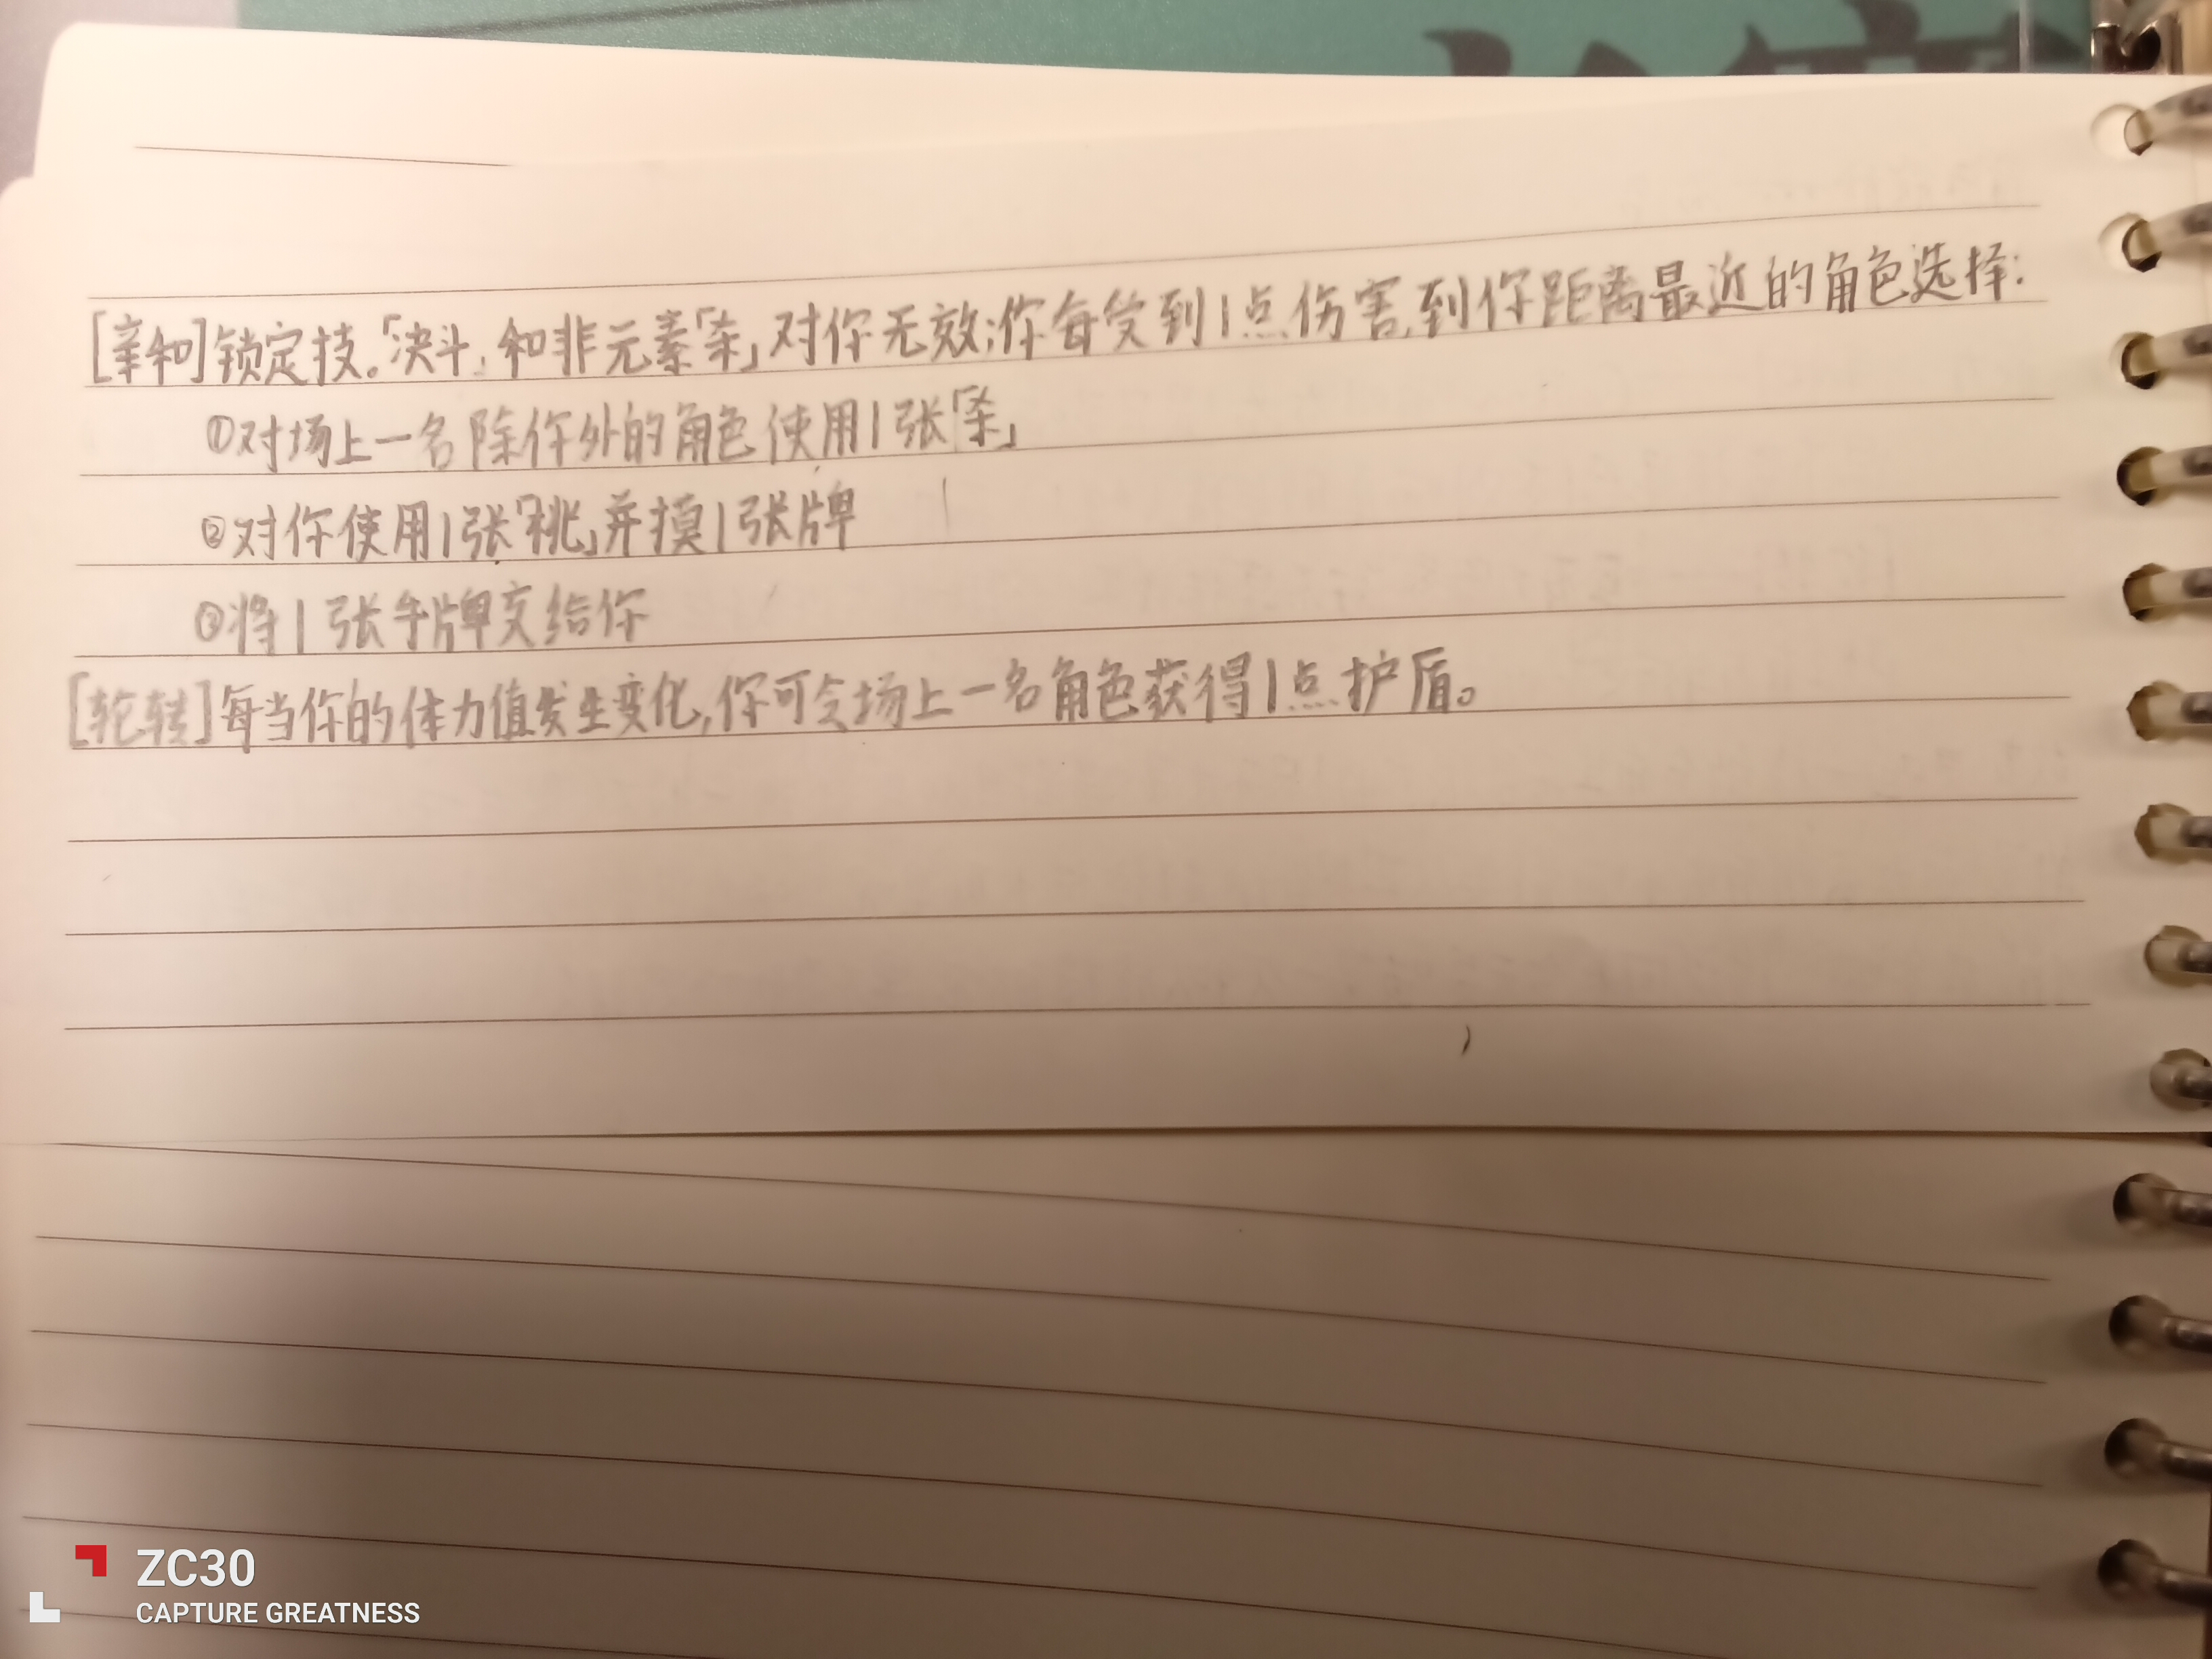 [亲和]锁定技。「决斗」和非元素「杀」对你无效;你每受到1点伤害,到你距离最近的角色选择:
①对场上一名除你外的角色使用1张「杀」
②对你使用1张「桃」并摸1张牌
③将1张手牌交给你
[轮转]每当你的体力值发生变化,你可令场上一名角色获得1点护盾。
ZC30
CAPTURE GREATNESS